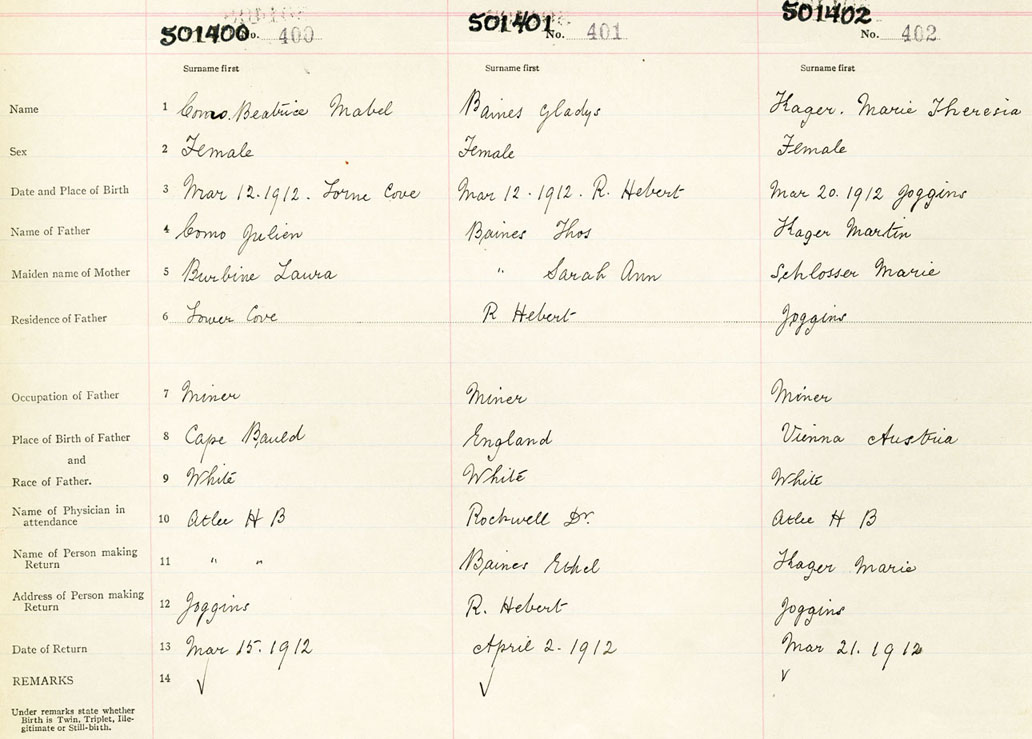 501400 No. 400 501401 No. 401 501402 No. 402
Surname first Surname first Surname first
Name 1 Como. Beatrice Mabel Baines Gladys Kager. Marie Theresia
Sex 2 Female Female Female
Date and Place of Birth 3 Mar 12.1912. Lorne Cove Mar 12.1912. R. Hebert Mar 20.1912 Joggins
Name of Father 4 Como Julien Baines Thos Kager Martin
Maiden name of Mother 5 Burbine Laura " Sarah Ann Schlosser Marie
Residence of Father 6 Lower Cove R Hebert Joggins
Occupation of Father 7 Miner Miner Miner
Place of Birth of Father 8 Cape Bauld England Vienna Austria
and
Race of Father. 9 White White White
Name of Physician in
attendance 10 Atlee H B Rockwell Dr. Atlee H B
Name of Person making
Return 11 " " Baines Ethel Kager Marie
Address of Person making
Return 12 Joggins R. Hebert Joggins
Date of Return 13 Mar 15.1912 April 2.1912 Mar 21.1912
REMARKS 14 ✓ ✓ ✓
Under remarks state whether
Birth is Twin, Triplet, Ille-
gitimate or Still-birth.